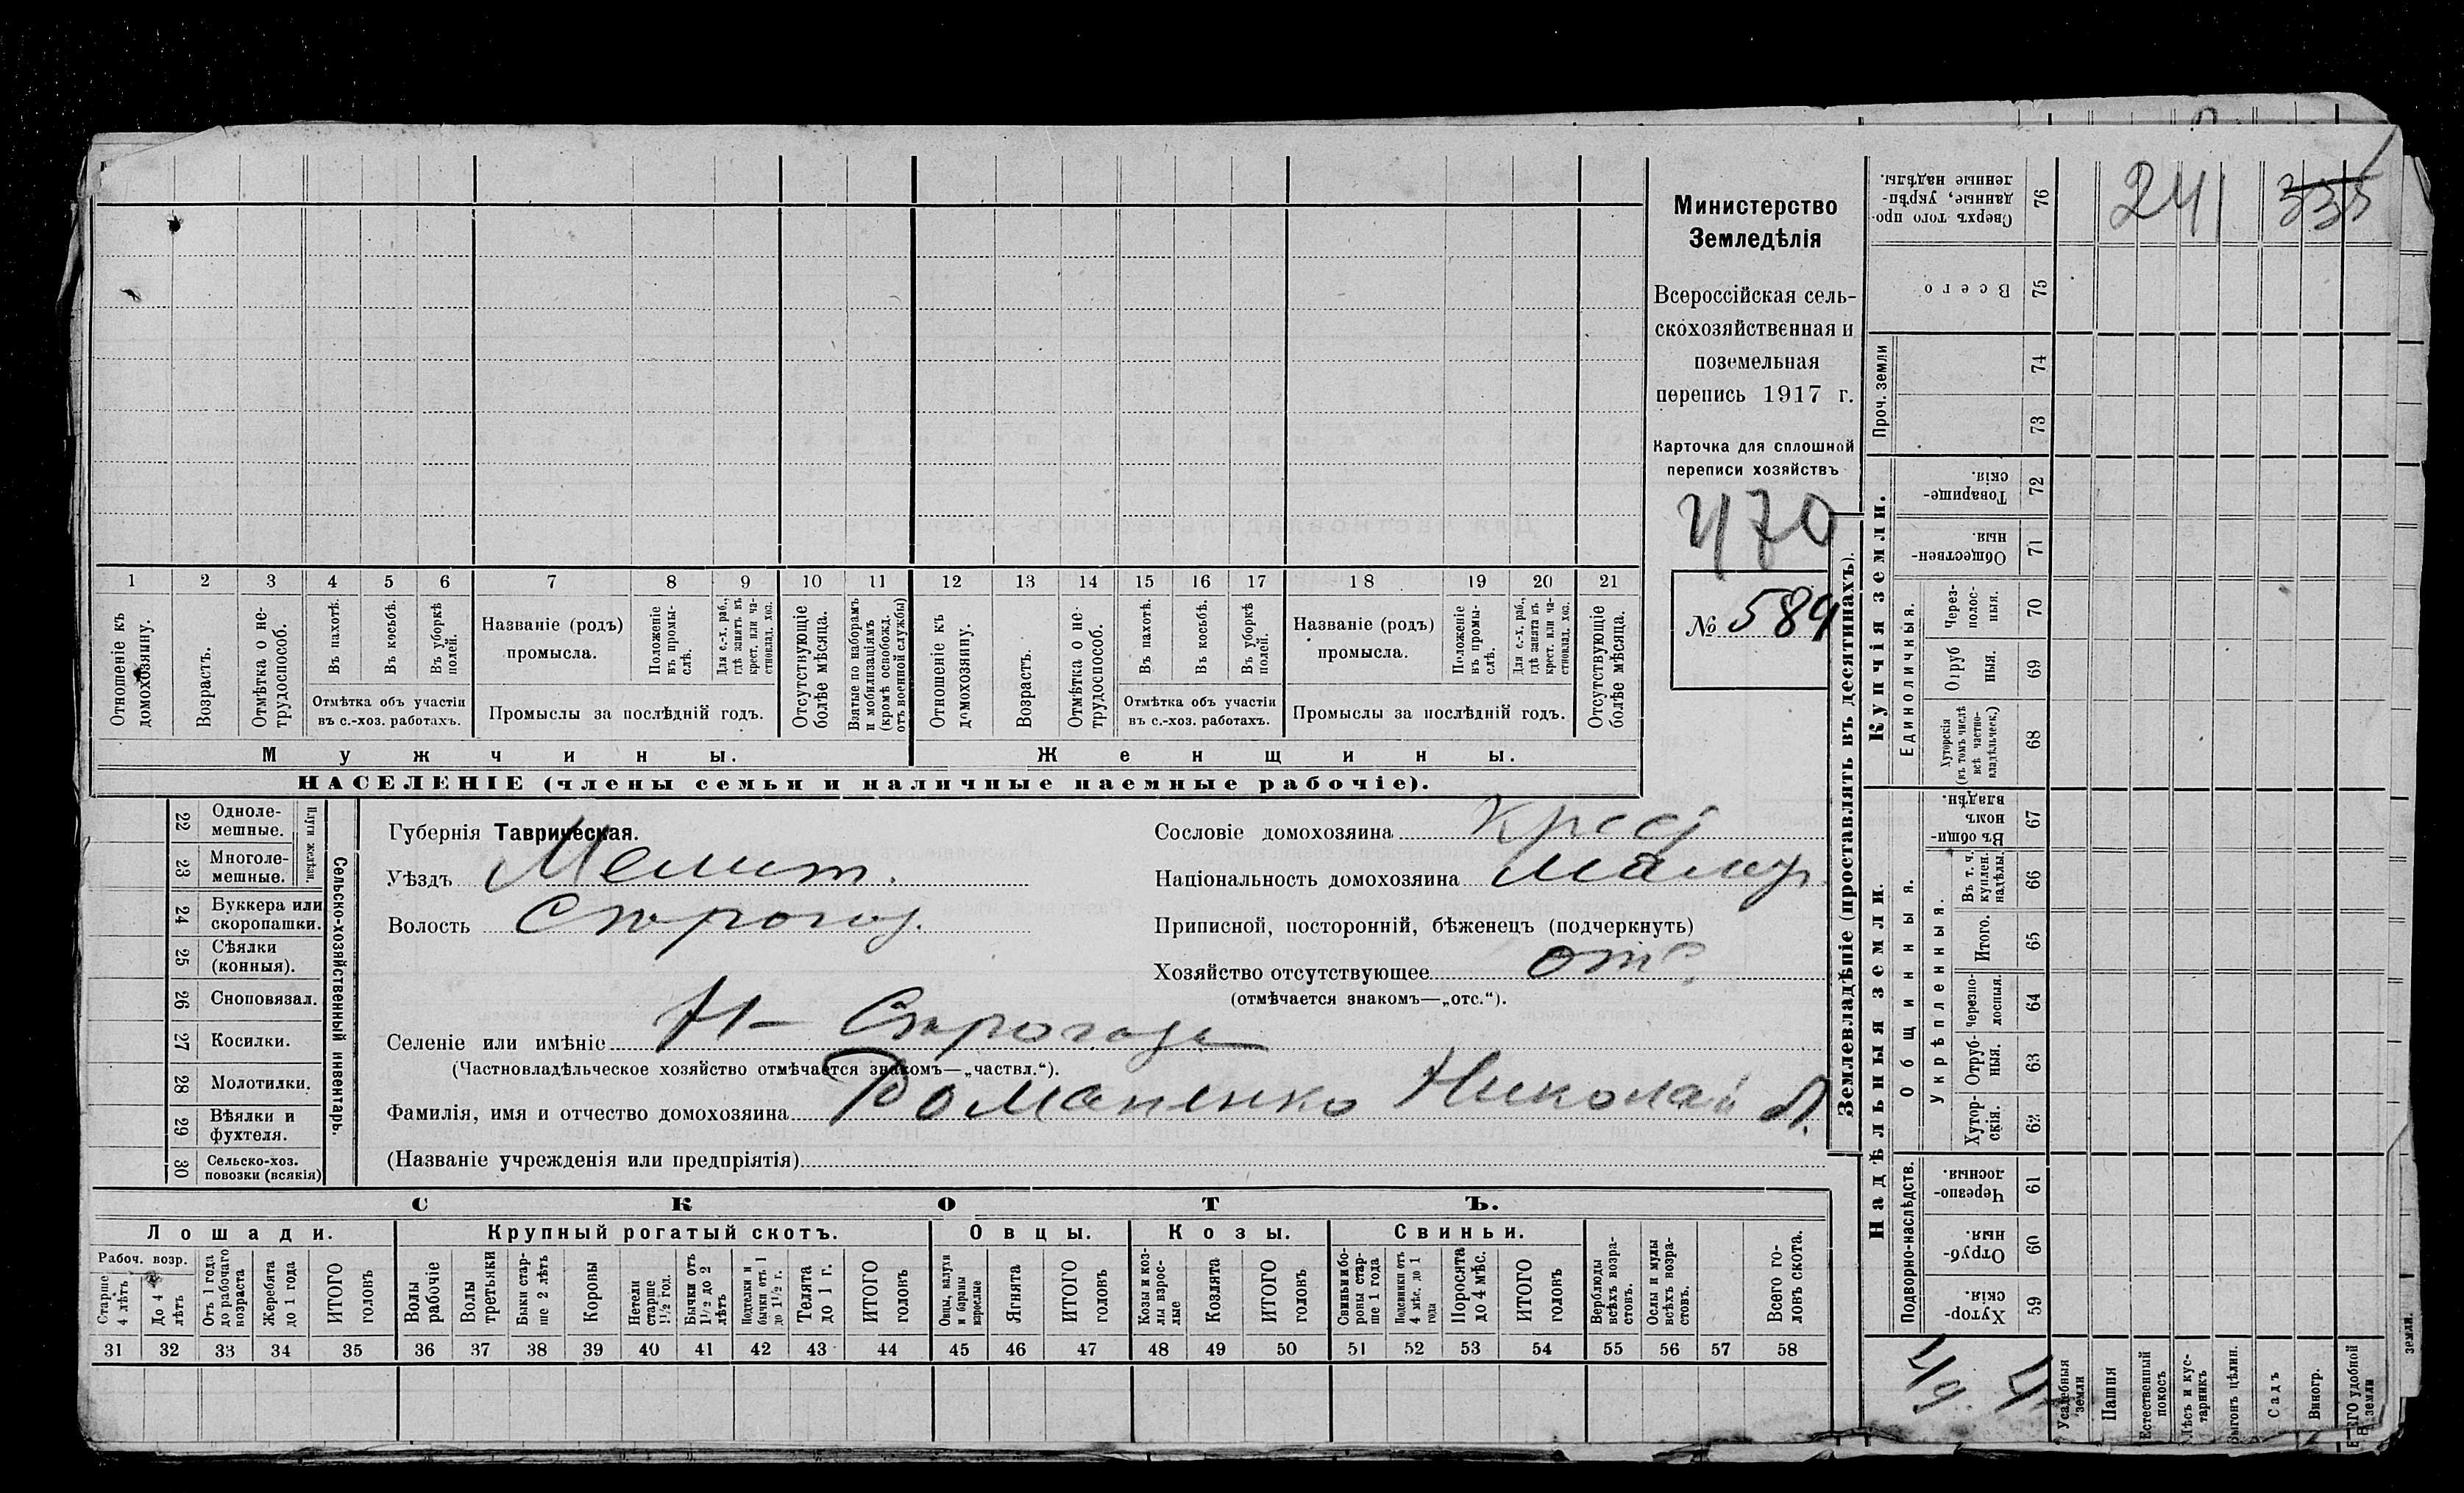 1 2 3 4 5 6 7 8 9 10 11 12 13 14 15 16 17 18 19 20 21
Отношеніе къ домохозяину.
Возрастъ.
Отмѣтка о нетрудоспособ.
Въ пахотѣ.
Въ косьбѣ.
Въ уборкѣ полей.
Отмѣтка объ участіи
въ с.-хоз. работахъ.
Названіе (родъ)
промысла.
Положеніе въ промыслѣ.
Для с.-х. раб., гдѣ занятъ въ крест. или частновлад. хоз.
Промыслы за послѣдній годъ.
Отсутствующіе болѣе мѣсяца.
Взятые по наборамъ и мобилизаціямъ (кромѣ освобожд. отъ военной службы)
Отношеніе къ домохозяину.
Возрастъ.
Отмѣтка о нетрудоспособ.
Въ пахотѣ.
Въ косьбѣ.
Въ уборкѣ полей.
Отмѣтка объ участіи
въ с.-хоз. работахъ.
Названіе (родъ)
промысла.
Положеніе въ промыслѣ.
Для с.-х. раб., гдѣ занята въ крест. или частновлад. хоз.
Промыслы за послѣдній годъ.
Отсутствующіе болѣе мѣсяца.
Мужчины. Женщины.
НАСЕЛЕНІЕ (члены семьи и наличные наемные рабочіе).
Министерство
Земледѣлія
Всероссійская сель-
скохозяйственная и
поземельная
перепись 1917 г.
Карточка для сплошной
переписи хозяйствъ
470
№ 589
22 Одноле-
мешные.
23 Многоле-
мешные.
Плуги желѣзн.
24 Буккера или
скоропашки.
25 Сѣялки
(конныя).
26 Сноповязал.
27 Косилки.
28 Молотилки.
29 Вѣялки и
фухтеля.
30 Сельско-хоз.
повозки (всякія)
Сельско-хозяйственный инвентарь.
Губернія Таврическая.
Уѣздъ Мелит.
Волость Строгоз.
Сословіе домохозяина крес
Національность домохозяина малор
Приписной, посторонній, бѣженецъ (подчеркнуть)
Хозяйство отсутствующее отс.
(отмѣчается знакомъ—„отс.“).
Селеніе или имѣніе Н - Строгозы
(Частновладѣльческое хозяйство отмѣчается знакомъ—„частвл.“).
Фамилія, имя и отчество домохозяина Романенко Николай А.
(Названіе учрежденія или предпріятія)
СКОТЪ.
Лошади. Крупный рогатый скотъ. Овцы. Козы. Свиньи.
Рабоч. возр.
Старше 4 лѣтъ
До 4 лѣтъ
Отъ 1 года до рабочаго возраста
Жеребята до 1 года
ИТОГО головъ
Волы рабочіе
Волы третьяки
Быки старше 2 лѣтъ
Коровы
Нетели старше 1½ год.
Бычки отъ 1½ до 2 лѣтъ
Подтелки и бычки отъ 1 до 1½ г.
Телята до 1 г.
ИТОГО головъ
Овцы, валухи и бараны взрослые
Ягнята
ИТОГО головъ
Козы и козлы взрослые
Козлята
ИТОГО головъ
Свиньи и боровы старше 1 года
Подсвинки отъ 4 мѣс. до 1 года
Поросята до 4 мѣс.
ИТОГО головъ
Верблюды всѣхъ возрастовъ.
Ослы и мулы всѣхъ возрастовъ.
Всего головъ скота.
31 32 33 34 35 36 37 38 39 40 41 42 43 44 45 46 47 48 49 50 51 52 53 54 55 56 57 58
Землевладѣніе (проставлять въ десятинахъ).
Надѣльныя земли. Купчія земли. Проч. земли
Подворно-наслѣдств.
Общинныя.
Укрѣпленныя.
Единоличныя.
Сверхъ того проданные, укрѣпленные надѣлы. 76
Всего 75
74
73
Товарищескія. 72
Общественныя. 71
Черезполосныя. 70
Отрубныя. 69
Хуторскія (въ томъ числѣ всѣ частновладѣльческ.) 68
Въ общинномъ владѣн. 67
Въ т. ч. куплен. надѣлы. 66
Итого. 65
Черезполосныя. 64
Отрубныя. 63
Хуторскія. 62
Черезполосныя. 61
Отрубныя. 60
Хуторскія. 59
241 335
Усадебныя земли
Пашня
Естественный покосъ
Лѣсъ и кустарникъ
Выгонъ цѣлин.
Садъ
Виногр.
земли.